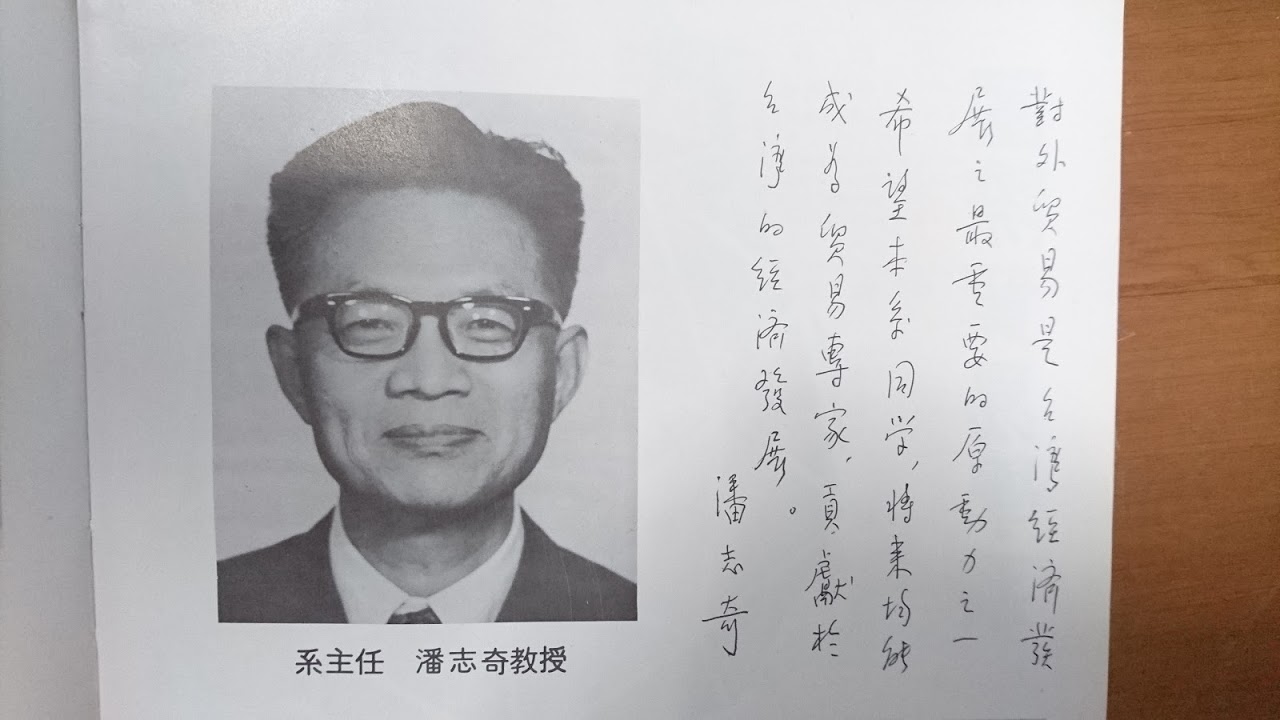 對外貿易是台灣經濟發
展之最重要的原動力之一
希望本系同学，將来均能
成为貿易專家，貢獻於
台灣的經济發展。
潘志奇
系主任　潘志奇教授